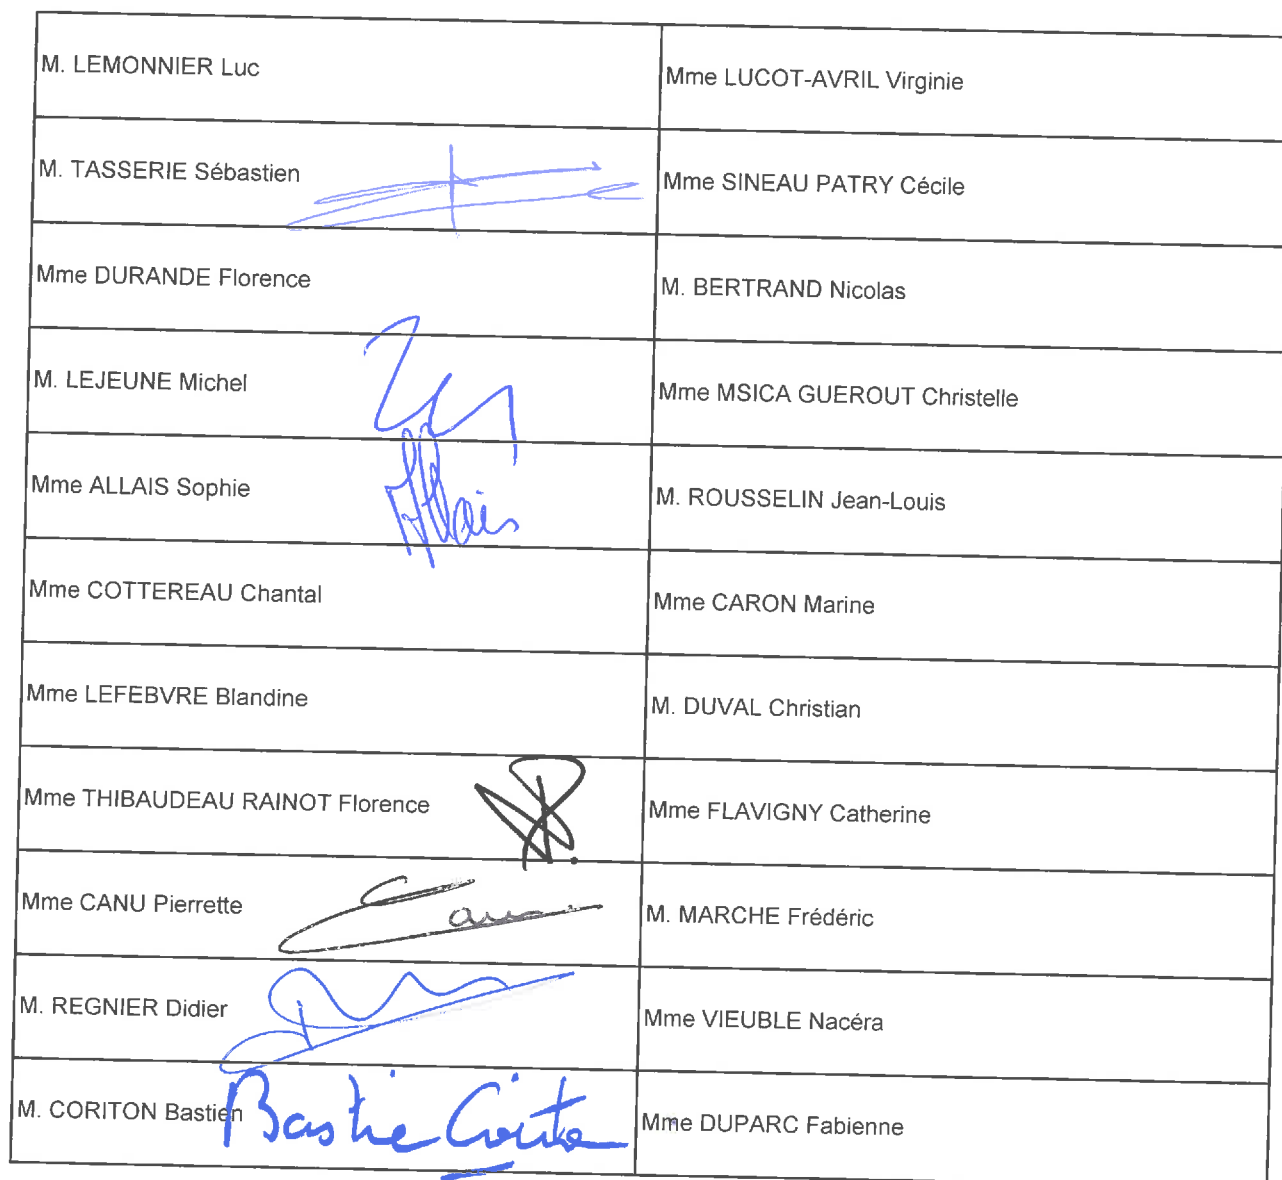 M. LEMONNIER Luc
Mme LUCOT-AVRIL Virginie
M. TASSERIE Sébastien
Mme SINEAU PATRY Cécile
Mme DURANDE Florence
M. BERTRAND Nicolas
M. LEJEUNE Michel
Mme MSICA GUEROUT Christelle
Mme ALLAIS Sophie
Allais
M. ROUSSELIN Jean-Louis
Mme COTTEREAU Chantal
Mme CARON Marine
Mme LEFEBVRE Blandine
M. DUVAL Christian
Mme THIBAUDEAU RAINOT Florence
Mme FLAVIGNY Catherine
Mme CANU Pierrette
M. MARCHE Frédéric
M. REGNIER Didier
Mme VIEUBLE Nacéra
M. CORITON Bastien
Mme DUPARC Fabienne